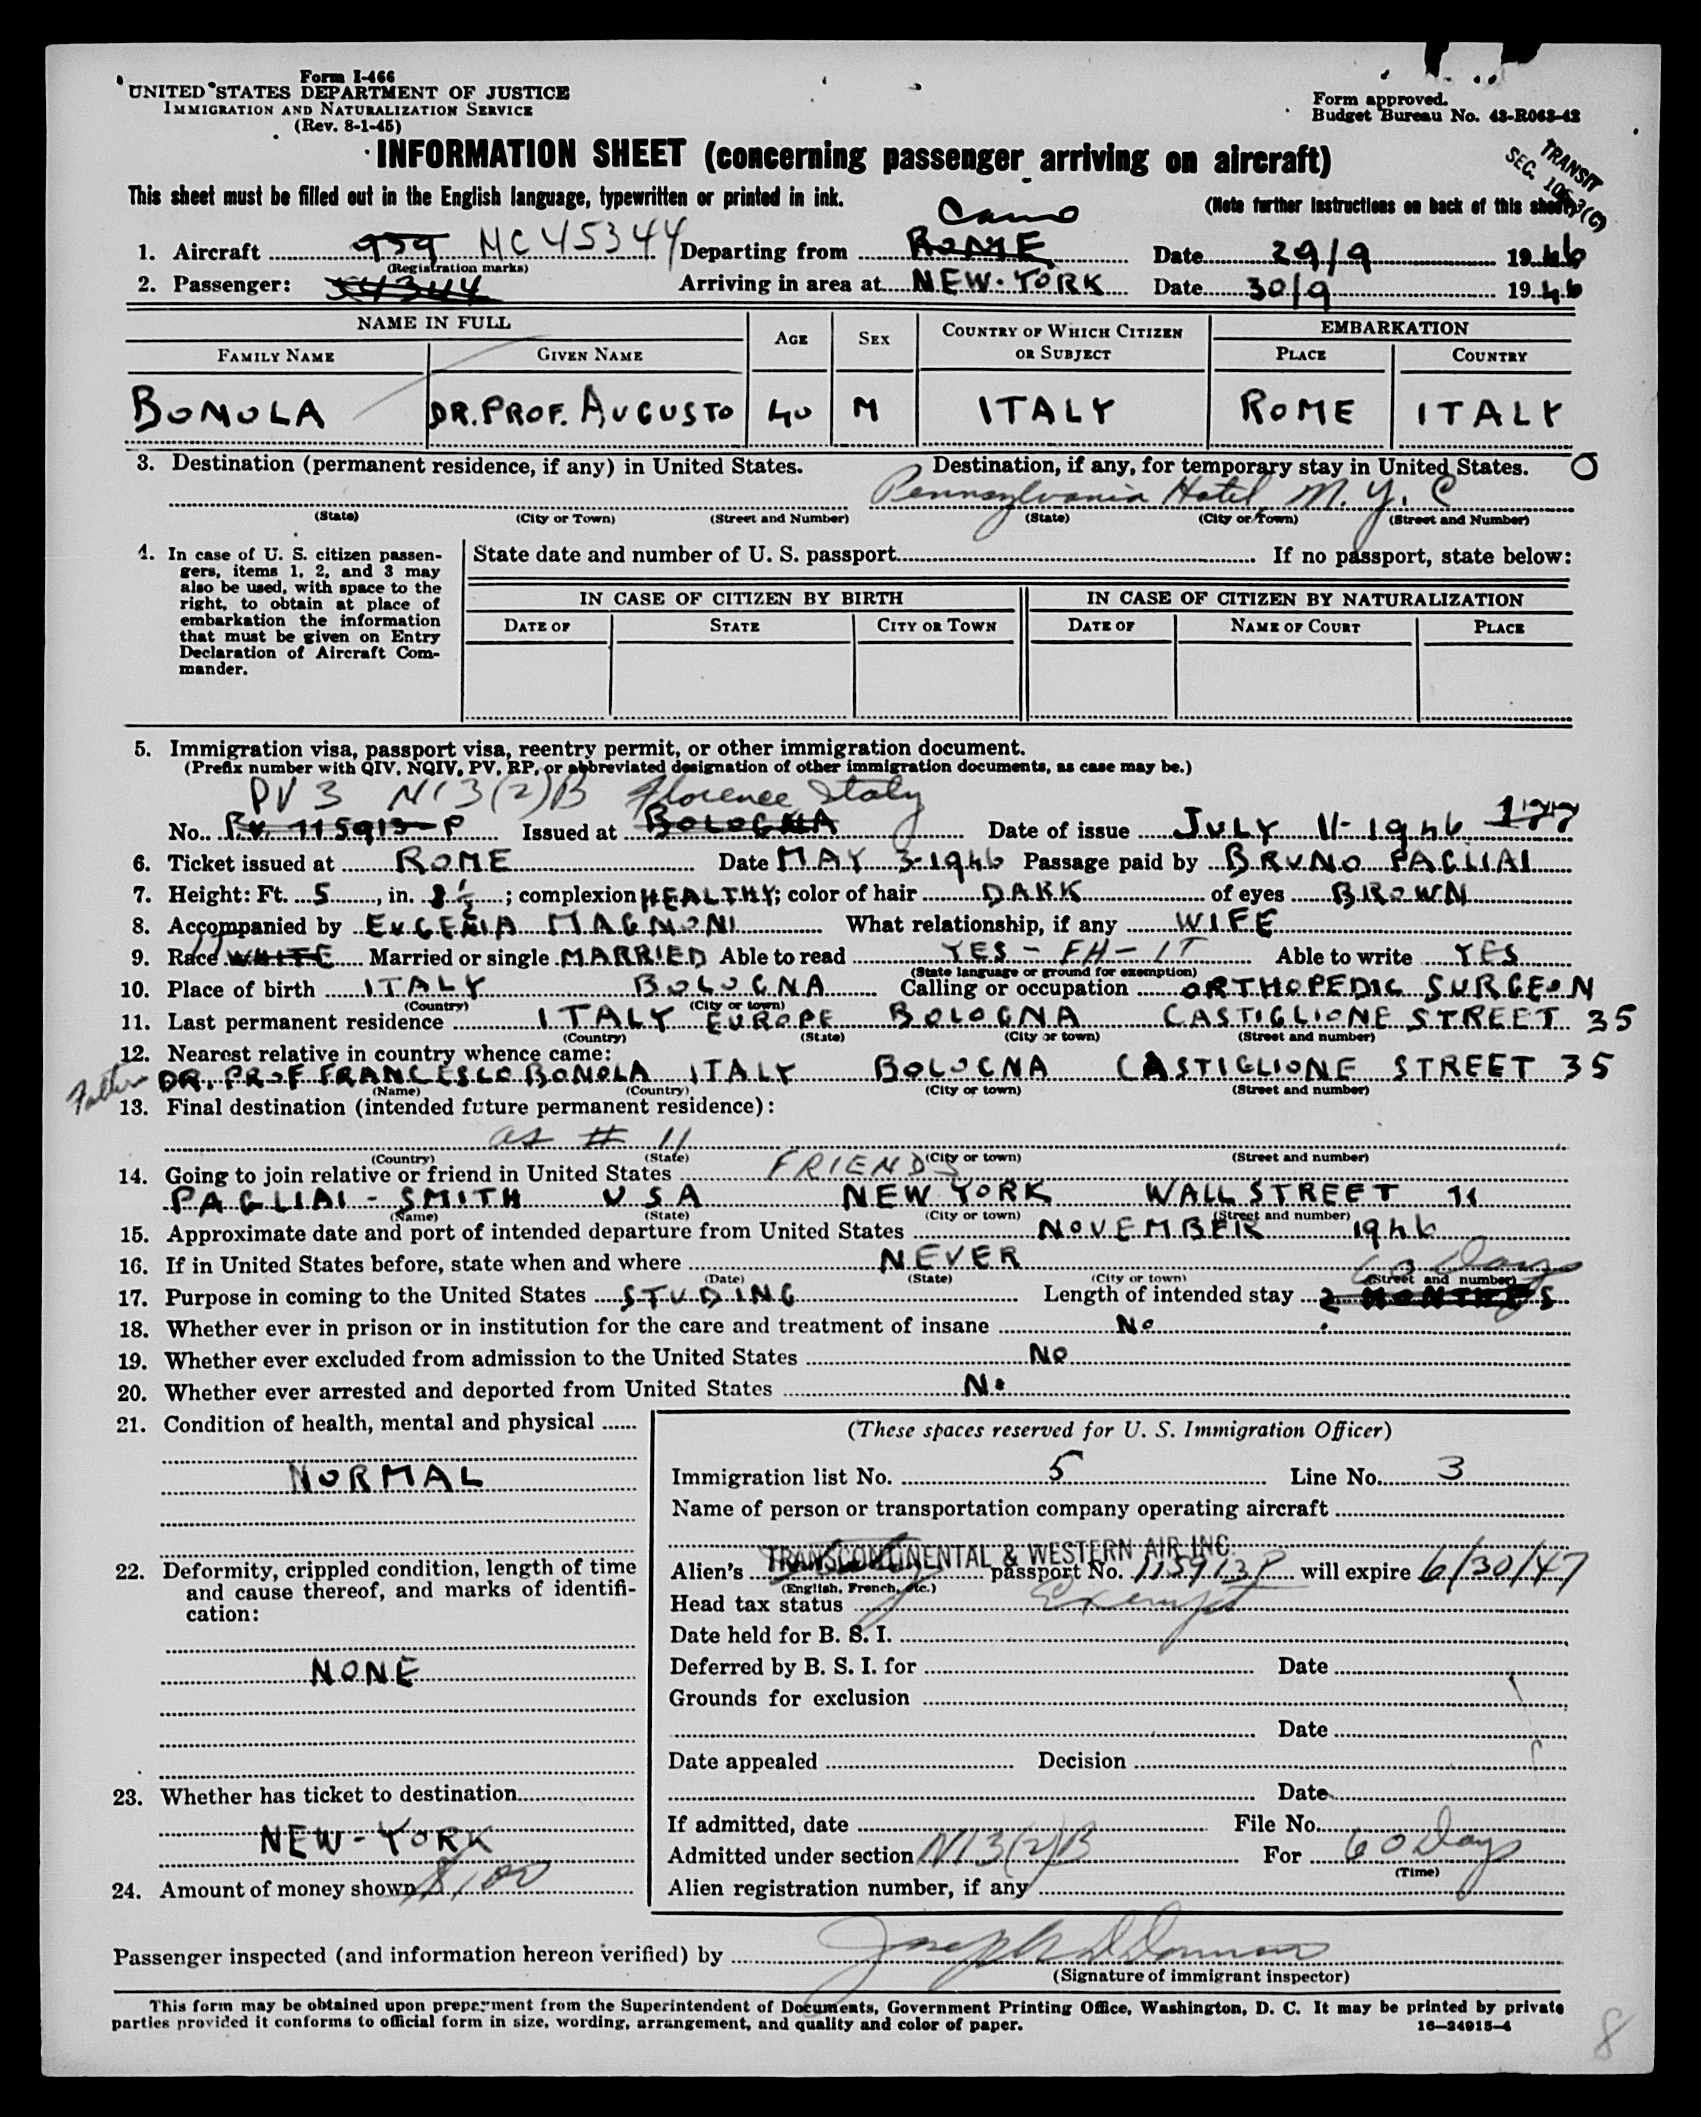 Form I-466
UNITED STATES DEPARTMENT OF JUSTICE
IMMIGRATION AND NATURALIZATION SERVICE
(Rev. 8-1-45)
Form approved.
Budget Bureau No. 43-R063-42
INFORMATION SHEET (concerning passenger arriving on aircraft)
TRANSIT
SEC.
This sheet must be filled out in the English language, typewritten or printed in ink.
(Note further instructions on back of this sheet)
1. Aircraft 959 NC 45344 Departing from ROME Cairo Date 29/9 1946
(Registration marks)
2. Passenger: 54344 Arriving in area at NEW-YORK Date 30/9 1946
NAME IN FULL AGE SEX COUNTRY OF WHICH CITIZEN OR SUBJECT EMBARKATION
FAMILY NAME GIVEN NAME PLACE COUNTRY
BONOLA DR. PROF. AUGUSTO 40 M ITALY ROME ITALY
3. Destination (permanent residence, if any) in United States. Destination, if any, for temporary stay in United States.
Pennsylvania Hotel, N.Y.C
(State) (City or Town) (Street and Number) (State) (City or Town) (Street and Number)
4. In case of U. S. citizen passen-
gers, items 1, 2, and 3 may
also be used, with space to the
right, to obtain at place of
embarkation the information
that must be given on Entry
Declaration of Aircraft Com-
mander.
State date and number of U. S. passport If no passport, state below:
IN CASE OF CITIZEN BY BIRTH IN CASE OF CITIZEN BY NATURALIZATION
DATE OF STATE CITY OR TOWN DATE OF NAME OF COURT PLACE
5. Immigration visa, passport visa, reentry permit, or other immigration document.
(Prefix number with QIV, NQIV, PV, RP, or abbreviated designation of other immigration documents, as case may be.)
PV 3 NI 3(2)B Florence Italy
No. P.V. 115913-P Issued at BOLOGNA Date of issue JULY 11-1946 177
6. Ticket issued at ROME Date MAY 3-1946 Passage paid by BRUNO PAGLIAI
7. Height: Ft. 5, in. 8 1/2; complexion HEALTHY; color of hair DARK of eyes BROWN
8. Accompanied by EUGENIA MAGNONI What relationship, if any WIFE
9. Race WHITE Married or single MARRIED Able to read YES - FH - IT Able to write YES
(State language or ground for exemption)
10. Place of birth ITALY BOLOGNA Calling or occupation ORTHOPEDIC SURGEON
(Country) (City or town)
11. Last permanent residence ITALY EUROPE BOLOGNA CASTIGLIONE STREET 35
(Country) (State) (City or town) (Street and number)
12. Nearest relative in country whence came:
Father DR. PROF FRANCESCO BONOLA ITALY BOLOGNA CASTIGLIONE STREET 35
(Name) (Country) (City or town) (Street and number)
13. Final destination (intended future permanent residence):
as # 11
(Country) (State) (City or town) (Street and number)
14. Going to join relative or friend in United States FRIENDS
PAGLIAI - SMITH USA NEW YORK WALL STREET
(Name) (State) (City or town) (Street and number)
15. Approximate date and port of intended departure from United States NOVEMBER 1946
16. If in United States before, state when and where NEVER
(Date) (State) (City or town) (Street and number)
60 Days
17. Purpose in coming to the United States STUDING Length of intended stay 2 MONTHES
18. Whether ever in prison or in institution for the care and treatment of insane No
19. Whether ever excluded from admission to the United States No
20. Whether ever arrested and deported from United States No
21. Condition of health, mental and physical
NORMAL
22. Deformity, crippled condition, length of time
and cause thereof, and marks of identifi-
cation:
NONE
23. Whether has ticket to destination
NEW-YORK
24. Amount of money shown $100
(These spaces reserved for U. S. Immigration Officer)
Immigration list No. 5 Line No. 3
Name of person or transportation company operating aircraft
TRANSCONTINENTAL & WESTERN AIR INC.
Alien's passport No. 115913P will expire 6/30/47
(English, French, etc.)
Head tax status Exempt
Date held for B. S. I.
Deferred by B. S. I. for Date
Grounds for exclusion
Date
Date appealed Decision
Date
If admitted, date File No.
Admitted under section NI 3(2)B For 60 Days
(Time)
Alien registration number, if any
Passenger inspected (and information hereon verified) by
(Signature of immigrant inspector)
This form may be obtained upon prepayment from the Superintendent of Documents, Government Printing Office, Washington, D. C. It may be printed by private
parties provided it conforms to official form in size, wording, arrangement, and quality and color of paper.
16—24915-4
8